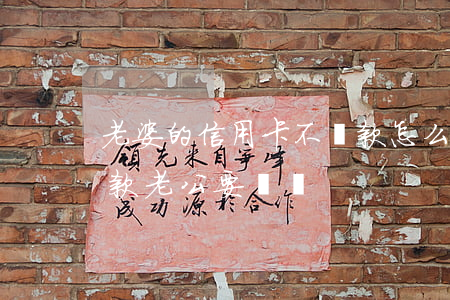 老婆的信用卡不款怎么
領先来自争峰
款老公要
成功源於合作